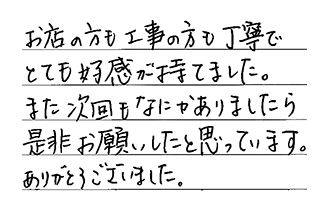 お店の方も工事の方も丁寧で
とても好感が持てました。
また次回もなにかありましたら
是非お願いしたと思っています。
ありがとうございました。